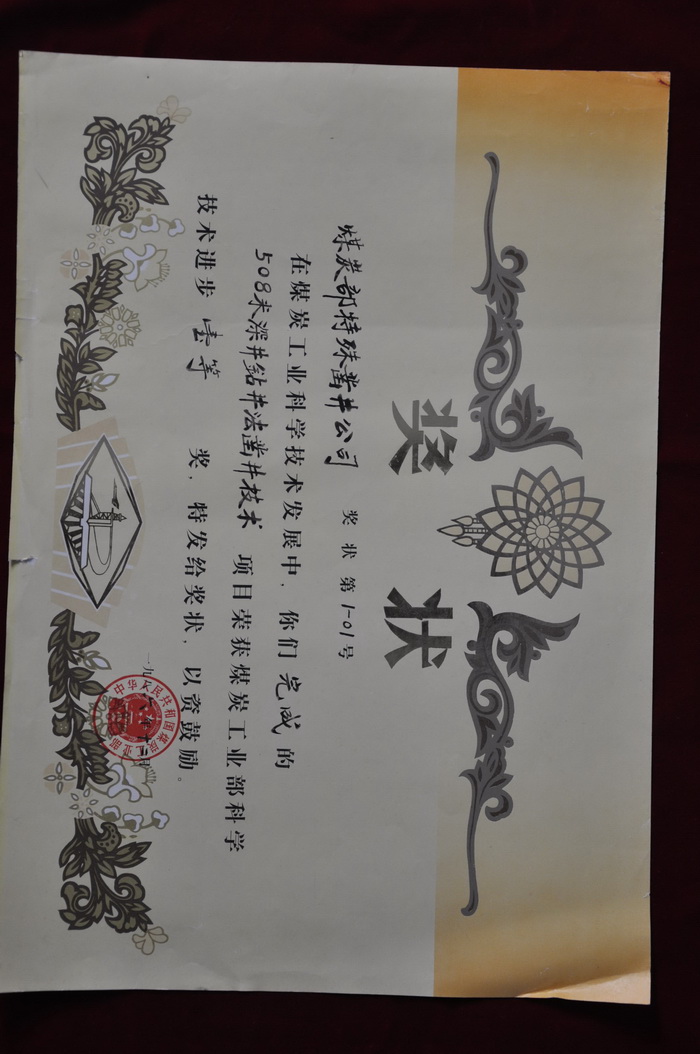 奖状
煤炭部特殊凿井公司 奖状第1-01号
在煤炭工业科学技术发展中，你们完成的
508米深井钻井法凿井技术 项目荣获煤炭工业部科学
技术进步壹等 奖，特发给奖状，以资鼓励。
中华人民共和国煤炭工业部